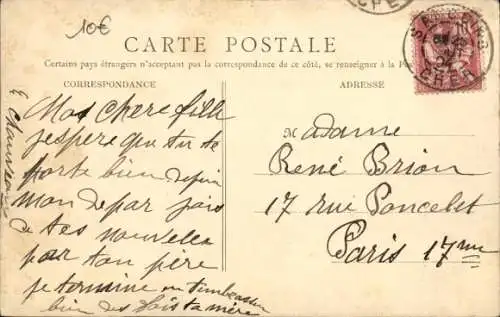 10€
CARTE POSTALE
Certains pays étrangers n'acceptant pas la correspondance de ce côté, se renseigner à la Pos
CORRESPONDANCE
ADRESSE
CHER
Ma chere fille
jespere que tu te
porte bien depui
mon depar jais
de tes nouvelles
par ton père
je termine en tembrassan
bien des fois ta mère
Madame
René Brion
17 rue Poncelet
Paris 17me